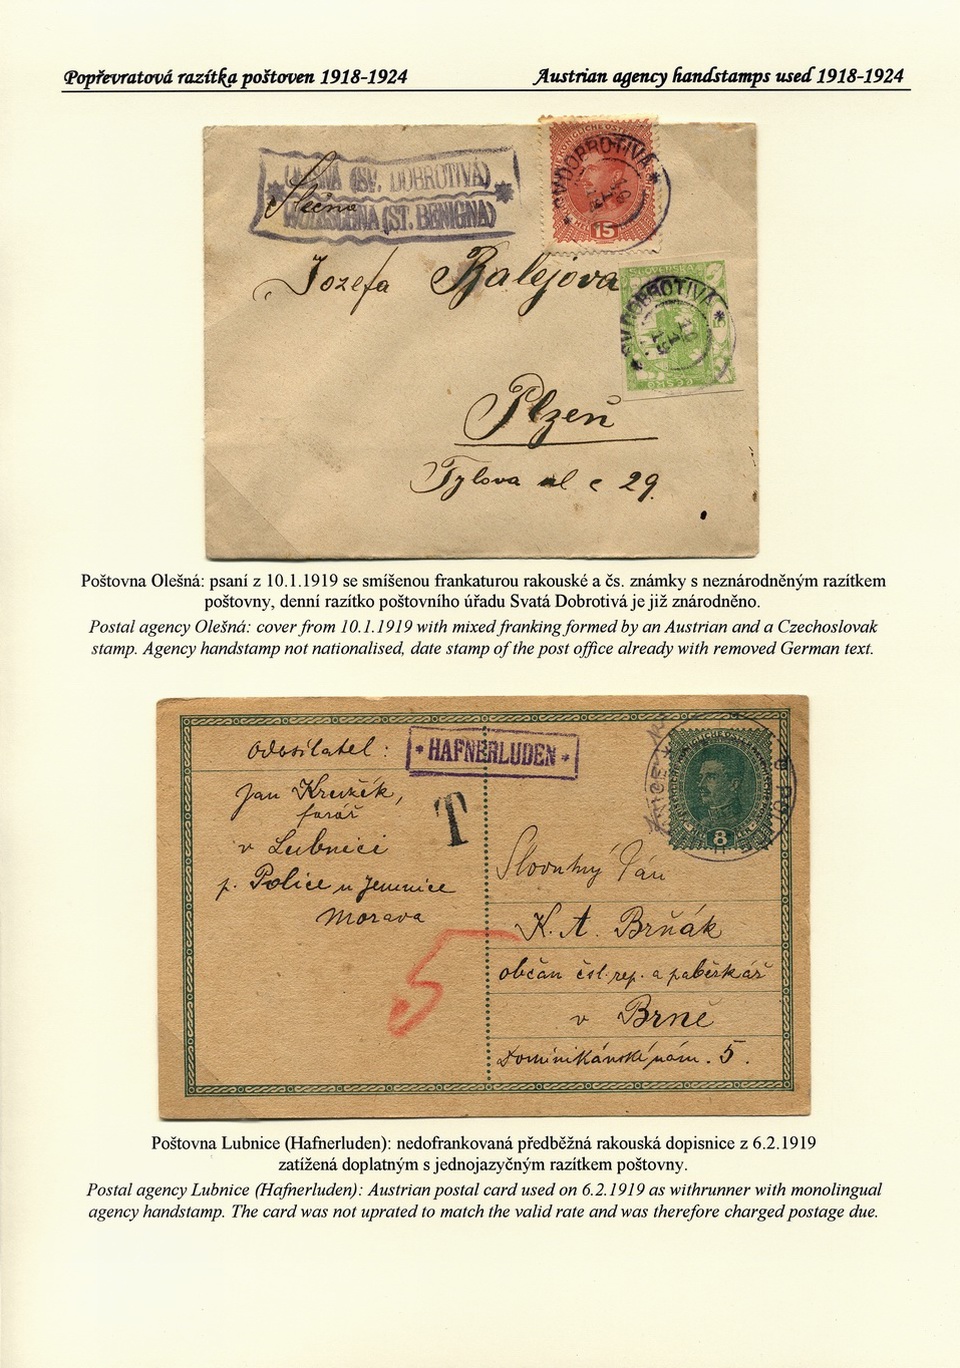 Popřevratová razítka poštoven 1918-1924
Austrian agency handstamps used 1918-1924
OLEŠNÁ (SV. DOBROTIVÁ)
WOLESCHNA (ST. BENIGNA)
Slečna
SV. DOBROTIVÁ
15
Jozefa Balejova
SV. DOBROTIVÁ
Plzeň
Tylova ul c 29.
Poštovna Olešná: psaní z 10.1.1919 se smíšenou frankaturou rakouské a čs. známky s neznárodněným razítkem
poštovny, denní razítko poštovního úřadu Svatá Dobrotivá je již znárodněno.
Postal agency Olešná: cover from 10.1.1919 with mixed franking formed by an Austrian and a Czechoslovak
stamp. Agency handstamp not nationalised, date stamp of the post office already with removed German text.
Odesílatel:
* HAFNERLUDEN *
8
Jan Kružík,
farář
v Lubnici
p. Police u Jemnice
Morava
T
5
Slovutný Pán
K. A. Brňák
občan čsl. rep. a paběrkář
v Brně
Dominikánské nám. 5.
Poštovna Lubnice (Hafnerluden): nedofrankovaná předběžná rakouská dopisnice z 6.2.1919
zatížená doplatným s jednojazyčným razítkem poštovny.
Postal agency Lubnice (Hafnerluden): Austrian postal card used on 6.2.1919 as withrunner with monolingual
agency handstamp. The card was not uprated to match the valid rate and was therefore charged postage due.